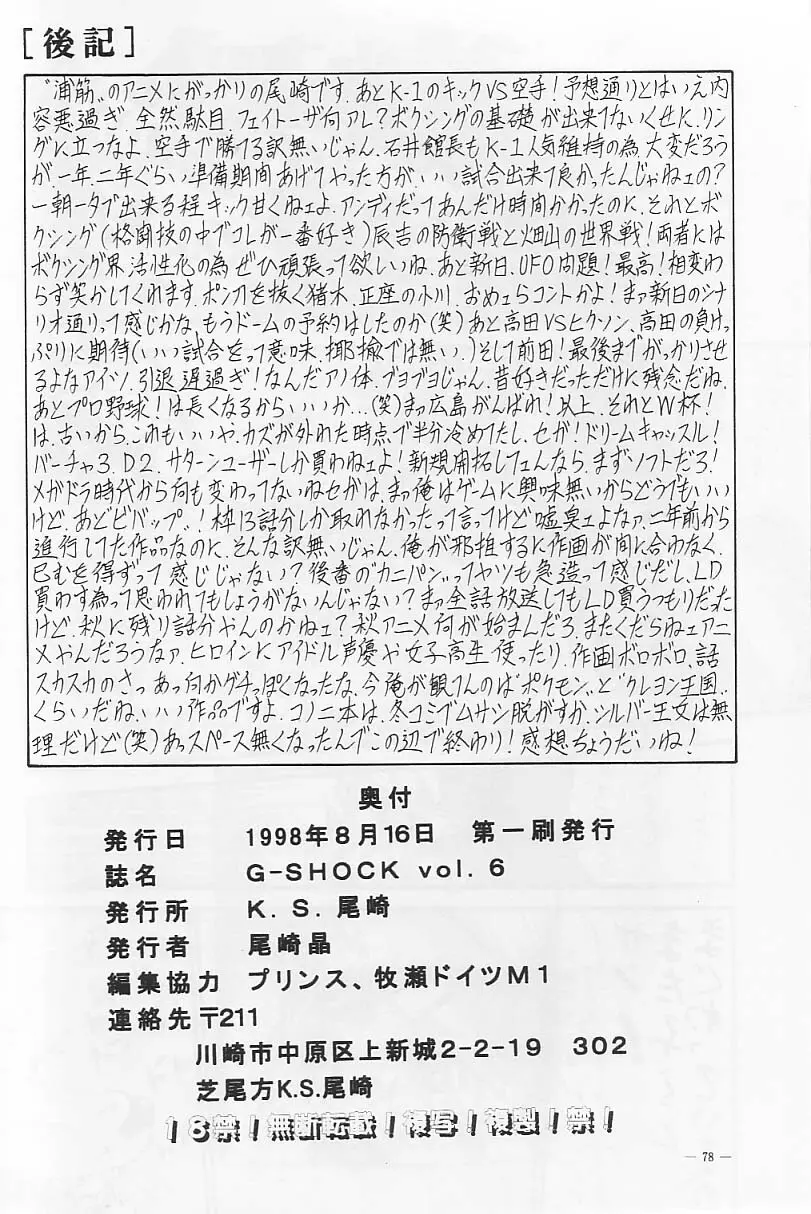 [後記]
〝浦筋〟のアニメにがっかりの尾崎です。あとK-1のキックVS空手!予想通りとはいえ内
容悪過ぎ。全然駄目。フェイトーザ何アレ?ボクシングの基礎が出来てないくせに、リン
グに立つなよ。空手で勝てる訳無いじゃん。石井館長もK-1人気維持の為、大変だろう
が、一年、二年ぐらい準備期間あげてやった方が、いい試合出来て良かったんじゃねェの?
一朝一夕で出来る程キック甘くねェよ。アンディだってあんだけ時間かかったのに。それとボ
クシング(格闘技の中でコレが一番好き)辰吉の防衛戦と畑山の世界戦!両者には
ボクシング界活性化の為ぜひ頑張って欲しいね。あと新日、UFO問題!最高!相変わ
らず笑かしてくれます。ポン刀を抜く猪木、正座の小川。おめェらコントかよ!まァ新日のシナ
リオ通りって感じかな。もうドームの予約はしたのか(笑)あと高田VSヒクソン、高田の負けっ
ぷりに期待(いい試合をって意味、揶揄では無い。)そして前田!最後までがっかりさせ
るよなアイツ。引退遅過ぎ!なんだアノ体、ブヨブヨじゃん。昔好きだっただけに残念だね。
あとプロ野球!は長くなるからいいか…(笑)まっ広島がんばれ!以上。それとW杯!
は、古いから、これもいいや。カズが外れた時点で半分冷めてたし。セガ!ドリームキャッスル!
バーチャ3、D2、サターンユーザーしか買わねェよ!新規開拓してェんなら、まずソフトだろ!
メガドラ時代から何も変わってないねセガは。まっ俺はゲームに興味無いからどうでもいい
けど。あとビバップ!枠13話分しか取れなかったって言ってけど嘘臭ェよなァ。二年前から
進行してた作品なのに、そんな訳無いじゃん。俺が邪推するに作画が間に合わなく、
已むを得ずって感じじゃない?後番の〝カニパン〟ってヤツも急造って感じだし、LD
買わす為って思われてもしょうがないんじゃない?まっ全話放送してもLD買うつもりだった
けど。秋に残り話分やんのかねェ?秋アニメ何が始まんだろ。またくだらねェアニ
メやんだろうなァ。ヒロインにアイドル声優や女子高生使ったり、作画ボロボロ、話
スカスカのさっ。あっ何かグチっぽくなったな。今俺が観てんのは〝ポケモン〟と〝クレヨン王国〟
くらいだね。いい作品ですよ。コノ二本は。冬コミでムサシ脱がすか。シルバー王女は無
理だけど(笑)あっスペース無くなったんでこの辺で終わり!感想ちょうだいね!
奥付
発行日 1998年8月16日 第一刷発行
誌名 G-SHOCK vol. 6
発行所 K. S. 尾崎
発行者 尾崎晶
編集協力 プリンス、牧瀬ドイツM1
連絡先 〒211
川崎市中原区上新城2-2-19 302
芝尾方K.S.尾崎
18禁!無断転載!複写!複製!禁!
— 78 —